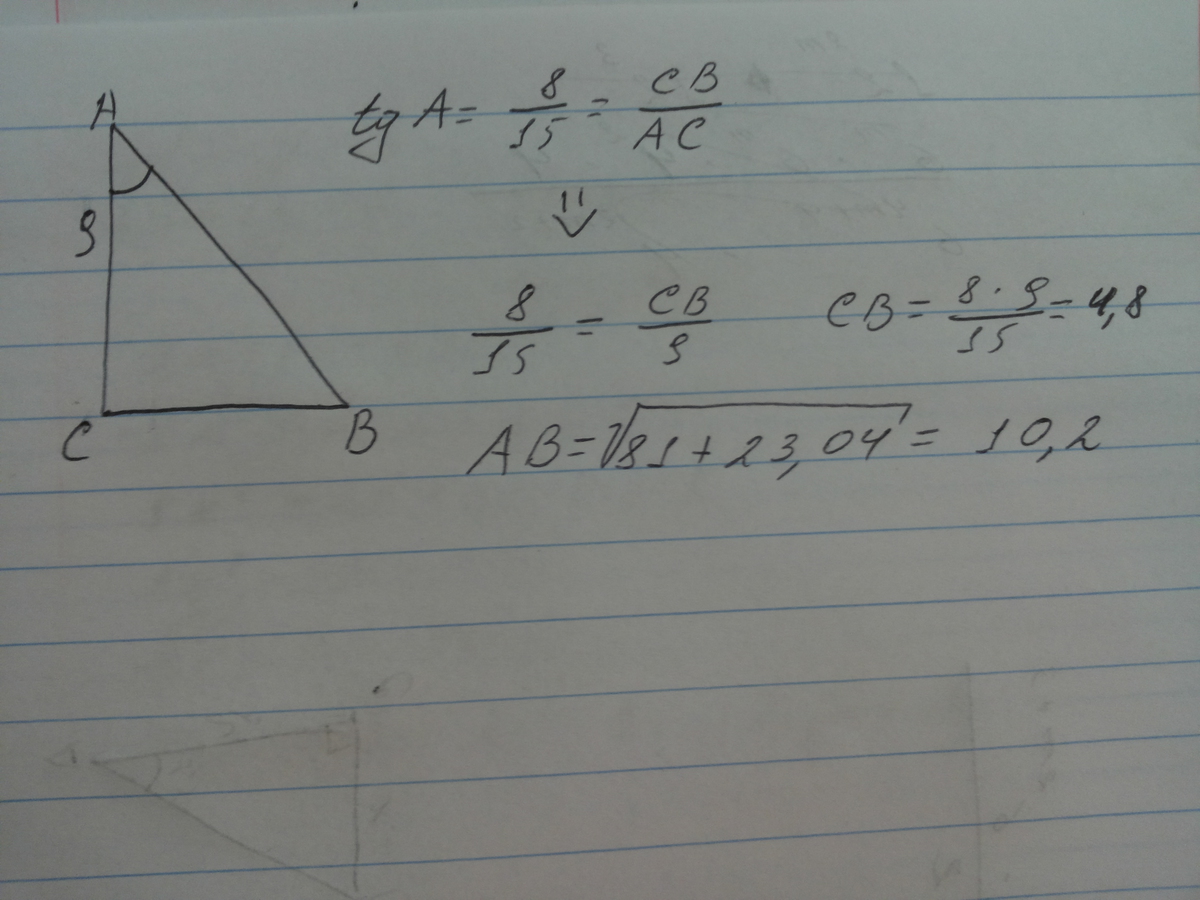 A
tg A = 8/15 = CB/AC
9
⇓
8/15 = CB/9
CB = 8·9/15 = 4,8
C
B
AB = √81 + 23,04 = 10,2